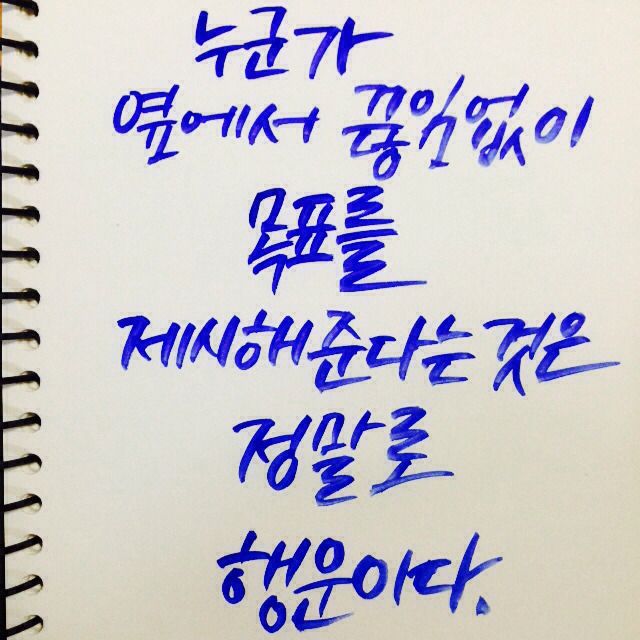 누군가
옆에서 끊임없이
목표를
제시해준다는 것은
정말로
행운이다.